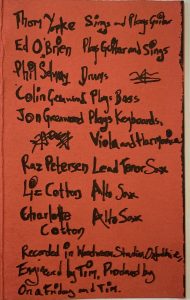 Thom Yorke Sings and Plays Guitar
Ed O'Brien Plays Guitar and Sings
Phil Selway Drums
Colin Greenwood Plays Bass
Jon Greenwood Plays Keyboards,
Viola and Harmonica
Raz Petersen Lead Tenor Sax
Liz Cotton Alto Sax
Charlotte Alto Sax
Cotton
Recorded in Woodworm Studios, Oxfordshire,
Engineered by Tim. Produced by
On a Friday and Tim.